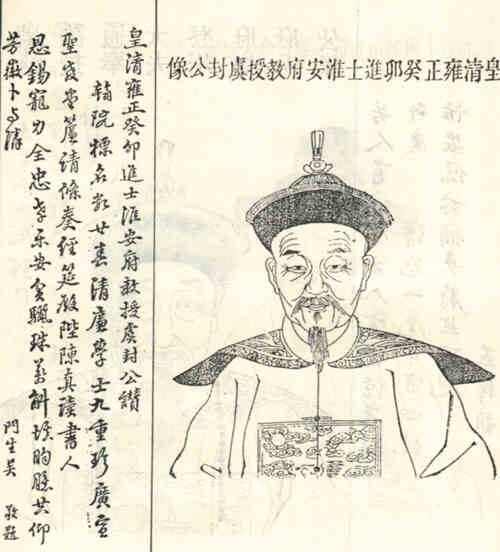 皇清雍正癸卯進士淮安府教授虞封公像
皇清雍正癸卯進士淮安府教授虞封公讚
翰院標名廿春清廉學士九重珍廣宣
聖簾績條奏經筵殿陛陳真讀書人
恩錫寵力全忠孝樂安貧驪珠萬斛填胸臆共仰
芳徽卜
門生吳 敬題